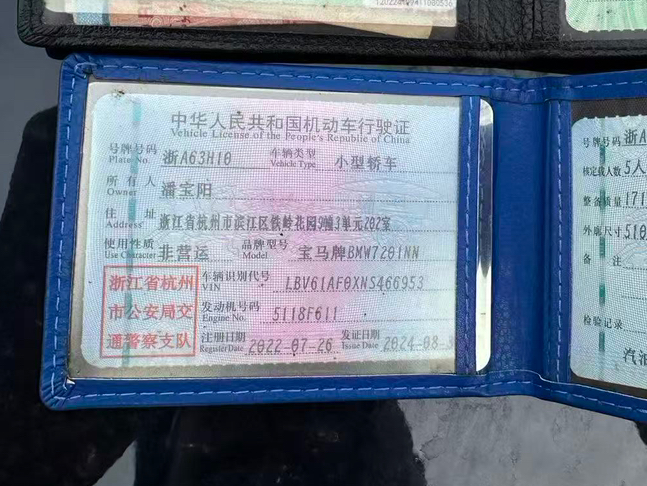 中华人民共和国机动车行驶证
Vehicle License of the People's Republic of China
号牌号码 Plate No. 浙A63H10 车辆类型 Vehicle Type 小型轿车
所有人 Owner 潘宝阳
住址 Address 浙江省杭州市滨江区铁岭花园9幢3单元202室
使用性质 Use Character 非营运 品牌型号 Model 宝马牌BMW7201NN
浙江省杭州市公安局交通警察支队
车辆识别代号 VIN LBV61AF0XNS466953
发动机号码 Engine No. 5118F611
注册日期 Register Date 2022-07-26 发证日期 Issue Date 2024-08-3
号牌号码 浙A
核定载人数 5人
整备质量 171
外廓尺寸 510
备注
检验记录
汽油